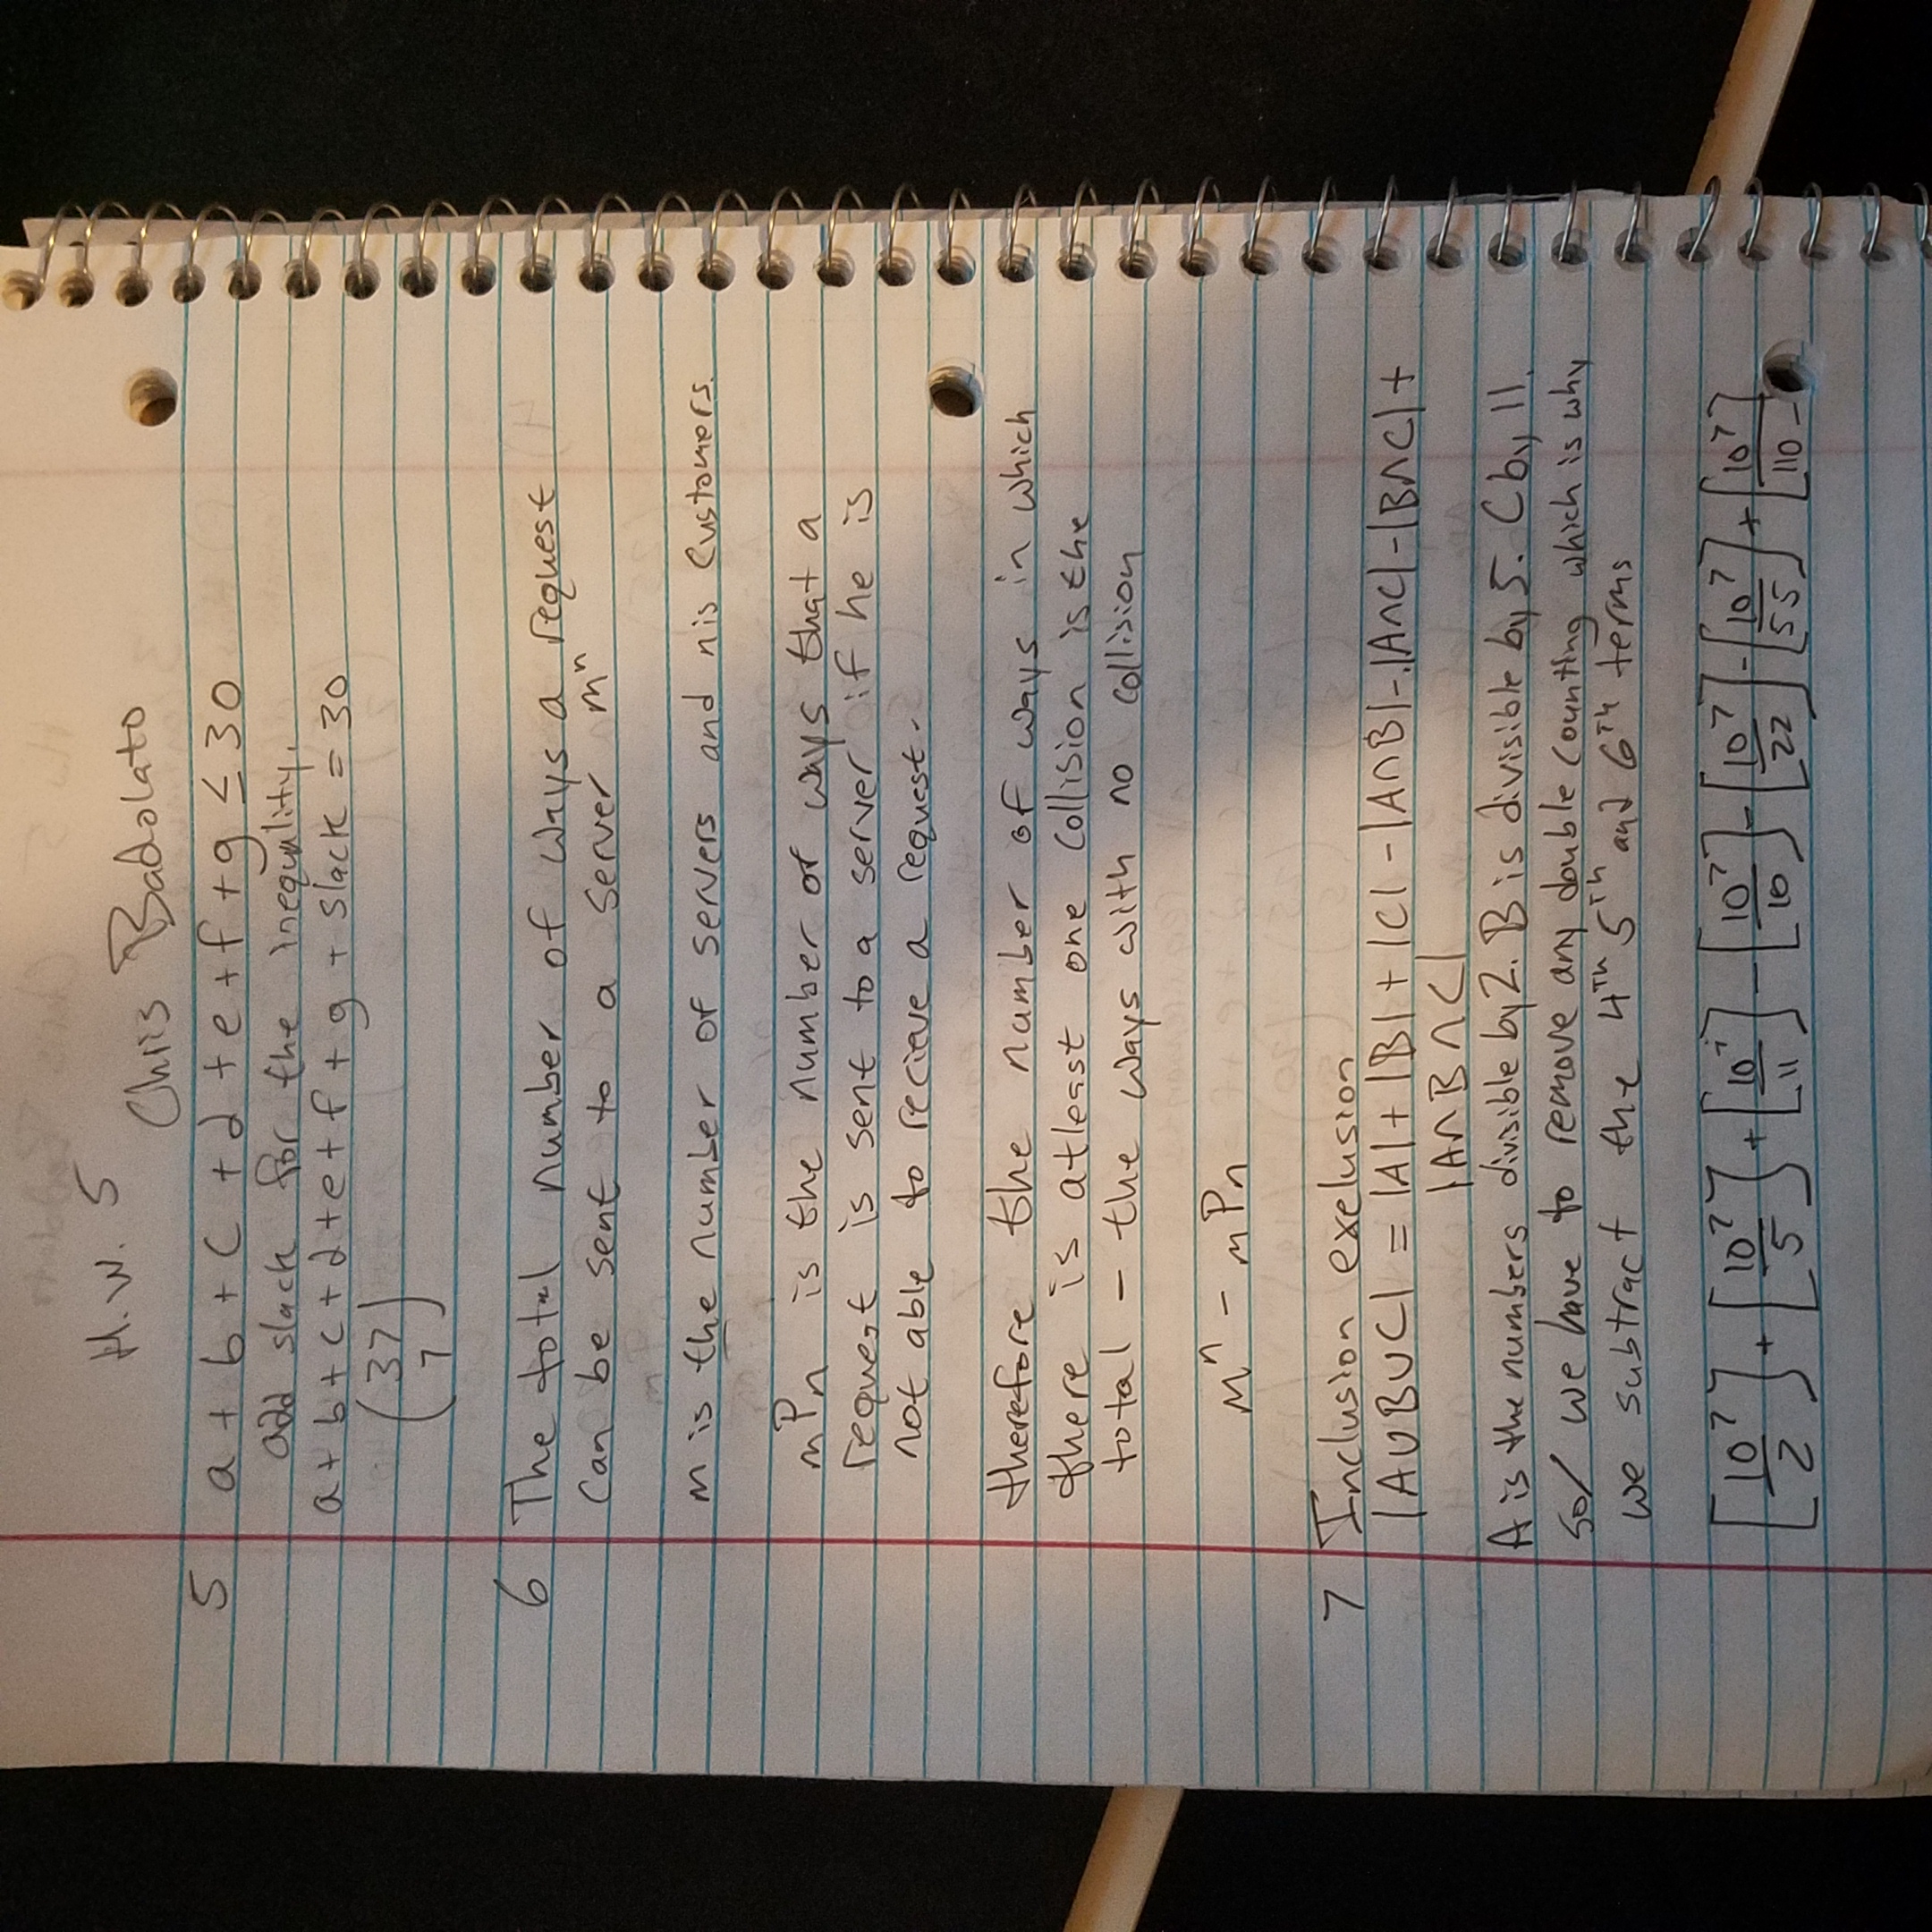 H.W. 5
Chris Badolato
5 a + b + c + d + e + f + g ≤ 30
add slack for the inequality.
a + b + c + d + e + f + g + Slack = 30
(37
7)
6 The total number of ways a request
can be sent to a server mⁿ
m is the number of servers and n is Customers.
mPn is the number of ways that a
request is sent to a server if he is
not able to recieve a request.
therefore the number of ways in which
there is atleast one collision is the
total - the ways with no collision
mⁿ - mPn
7 Inclusion exclusion
|A∪B∪C| = |A| + |B| + |C| - |A∩B| - |A∩C| - |B∩C| +
|A∩B∩C|
A is the numbers divisible by 2. B is divisible by 5. C by 11.
so/ we have to remove any double counting which is why
we subtract the 4ᵀʰ 5ᵀʰ and 6ᵀʰ terms
[10⁷/2] + [10⁷/5] + [10⁷/11] - [10⁷/10] - [10⁷/22] - [10⁷/55] + [10⁷/110]